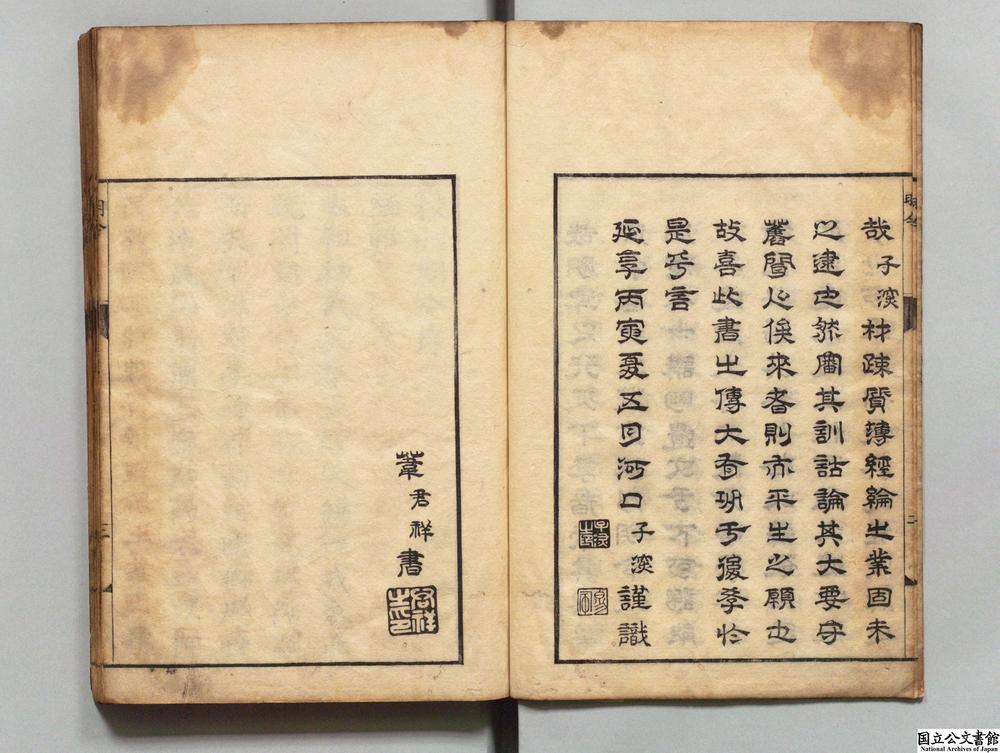 哉子深材疎質薄經綸之業固未
之逮也然圖其訓詁論其大要守
舊聞以俟來者則亦平生之願也
故喜此書之傳大有功于後學於
是乎言
延享丙寅夏五月河口子深謹識
葦君祥書
君祥
国立公文書館
National Archives of Japan